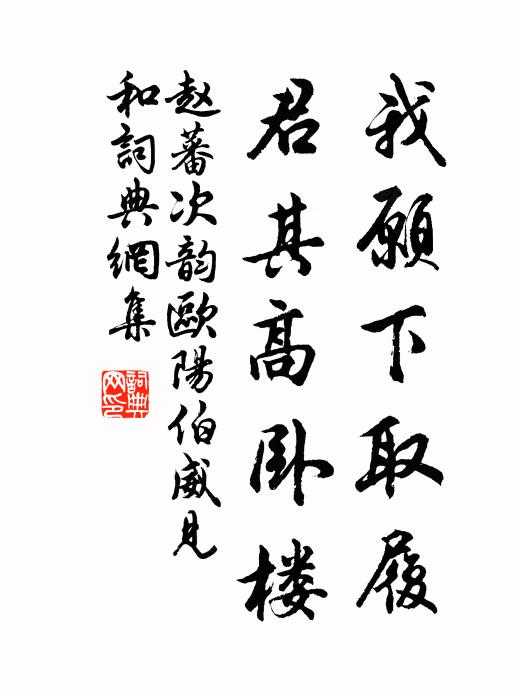 我願下取履
君其高卧楼
赵蕃次韵歐陽伯威見
和詞典網集
詞典网印